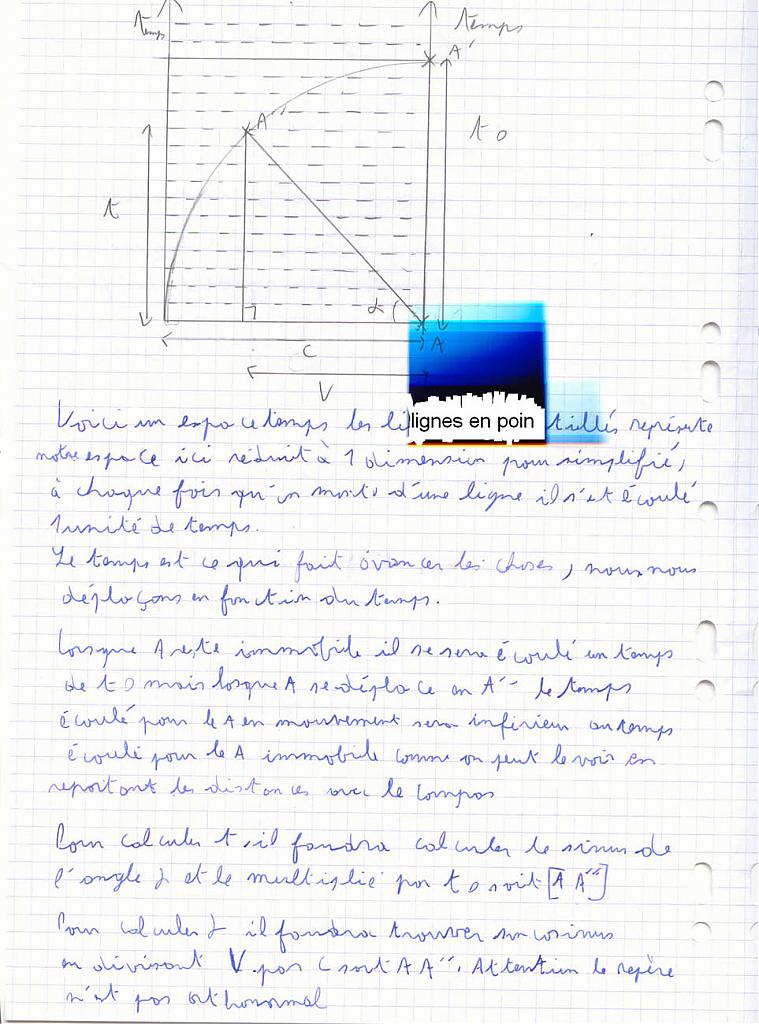 temps
temps
A'
A''
t0
t
α
A
C
V
Voici un espace temps les li lignes en poin tillés représente
notre espace ici réduit à 1 dimension pour simplifié,
à chaque fois qu'on monte d'une ligne il s'est écoulé
1 unité de temps.
Le temps est ce qui fait avancer les choses, nous nous
déplaçons en fonction du temps.
Lorsque A reste immobile il se sera écoulé un temps
de t0 mais losque A se déplace en A'' le temps
écoulé pour le A en mouvement sera inférieur au temps
écoulé pour le A immobile comme on peut le voir en
reportant les distances avec le compas
Pour calculer t, il faudra calculer le sinus de
l'angle α et le multiplié par t0 soit [A A'']
Pour calculer α il faudra trouver son cosinus
en divisant V par C soit A A''. Attention le repère
n'est pas orthonormal